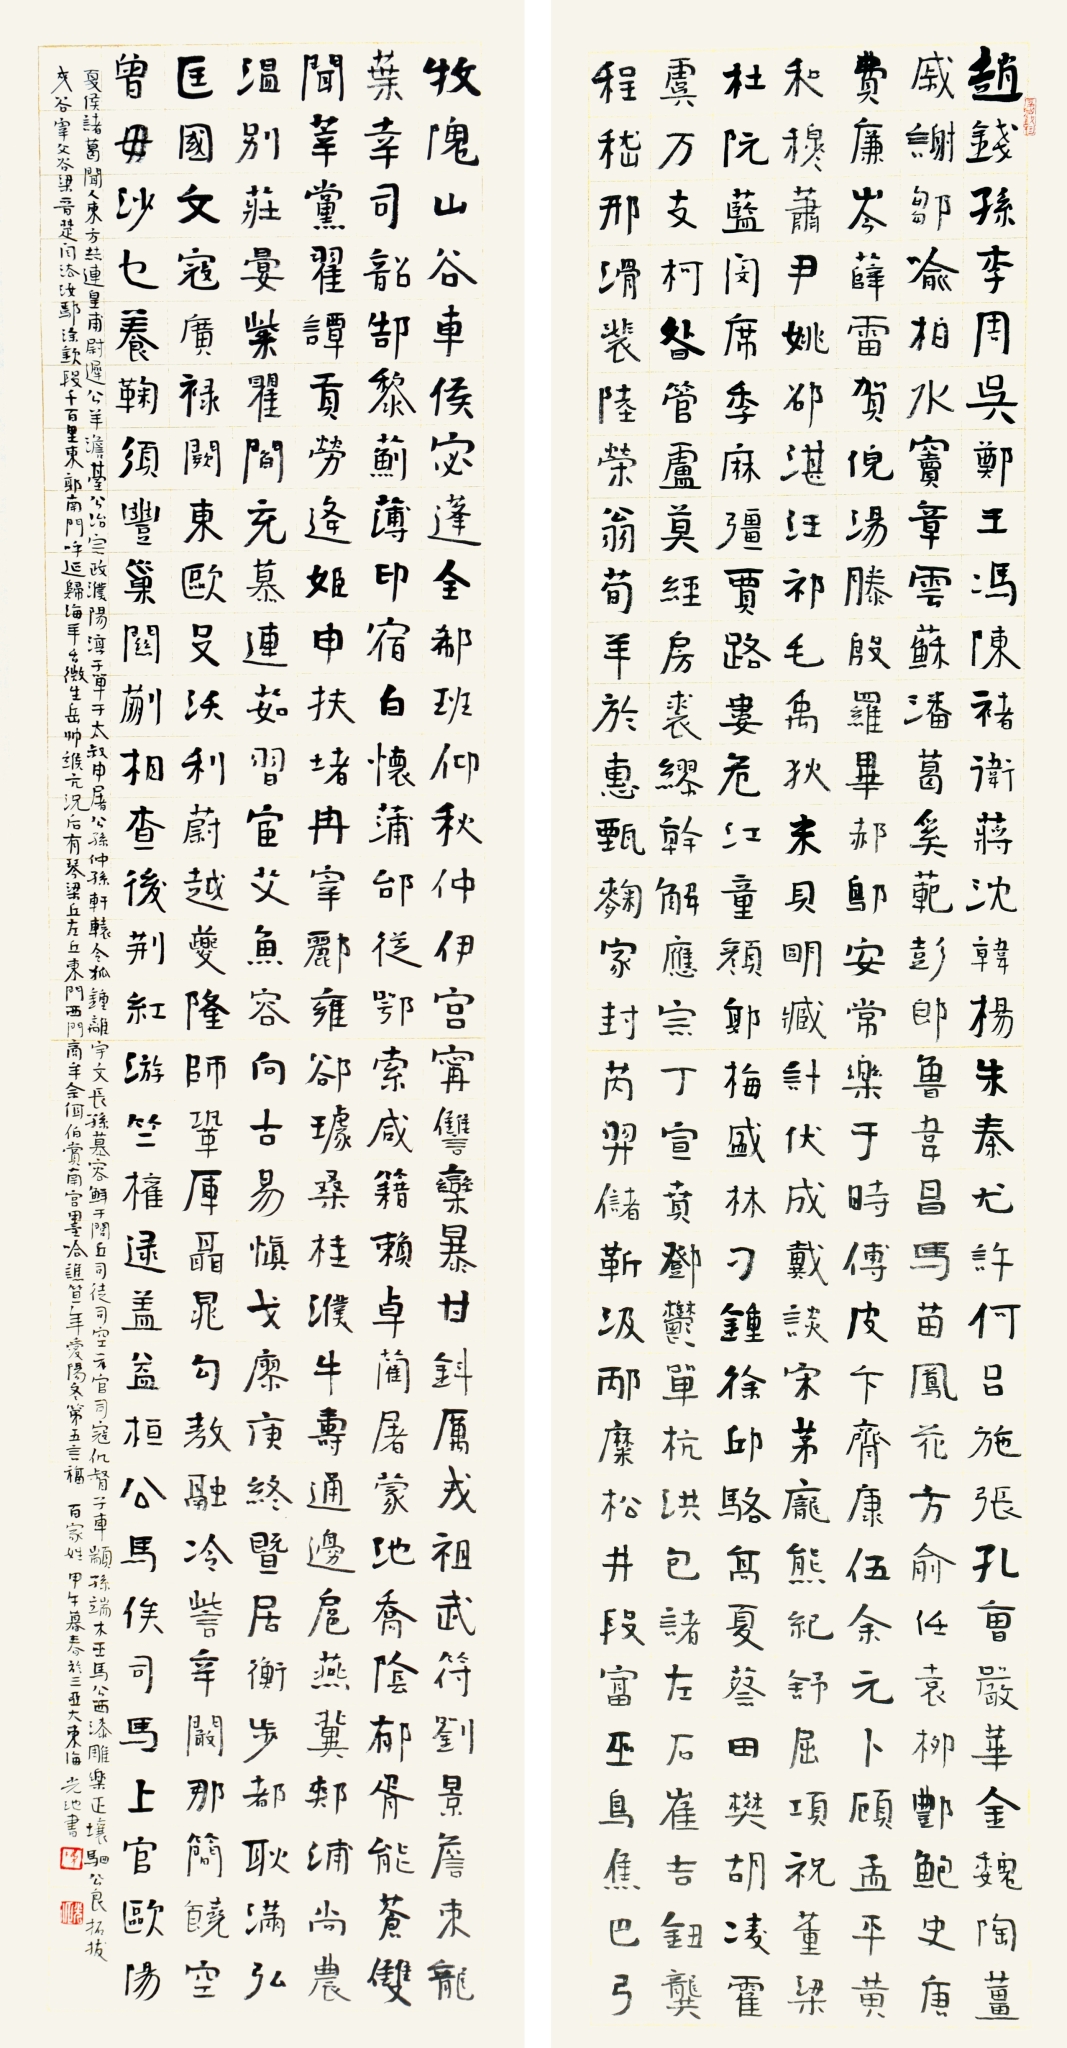 趙錢孫李周吳鄭王馮陳褚衛蔣沈韓楊朱秦尤許何呂施張孔曹嚴華金魏陶薑
戚謝鄒喻柏水竇章雲蘇潘葛奚範彭郎魯韋昌馬苗鳳花方俞任袁柳酆鮑史唐
費廉岑薛雷賀倪湯滕殷羅畢郝鄔安常樂于時傅皮卞齊康伍余元卜顧孟平黃
和穆蕭尹姚邵湛汪祁毛禹狄末貝明臧計伏成戴談宋茅龐熊紀舒屈項祝董梁
杜阮藍閔席季麻彊賈路婁危江童顏郭梅盛林刁鍾徐邱駱高夏蔡田樊胡凌霍
虞万支柯昝管盧莫經房裘繆幹解應宗丁宣賁鄧鬱單杭洪包諸左石崔吉鈕龔
程嵇邢滑裴陸榮翁荀羊於惠甄麴家封芮羿儲靳汲邴糜松井段富巫烏焦巴弓
牧隗山谷車侯宓蓬全郗班仰秋仲伊宮甯讐欒暴甘鈄厲戎祖武符劉景詹束龍
葉幸司韶郜黎薊薄印宿白懷蒲邰從鄂索咸籍賴卓藺屠蒙池喬陰郁胥能蒼雙
聞莘黨翟譚貢勞逄姬申扶堵冉宰酈雍郤璩桑桂濮牛壽通邊扈燕冀郟浦尚農
溫別莊晏柴瞿閻充慕連茹習宦艾魚容向古易慎戈廖庚終暨居衡步都耿滿弘
匡國文寇廣祿闕東歐殳沃利蔚越夔隆師鞏厙聶晁勾敖融冷訾辛闞那簡饒空
曾毋沙乜養鞠須豐巢關蒯相查後荊紅游竺權逯盖益桓公馬俟司馬上官歐陽
夏侯諸葛聞人東方赫連皇甫尉遲公羊澹臺公冶宗政濮陽淳于單于太叔申屠公孫仲孫軒轅令狐鍾離宇文長孫慕容鮮于閭丘司徒司空亓官司寇仉督子車顓孫端木巫馬公西漆雕樂正壤駟公良拓拔
夾谷宰父谷梁晉楚閆法汝鄢涂欽段干百里東郭南門呼延歸海羊舌微生岳帅緱亢况后有琴梁丘左丘東門西門商牟佘佴伯賞南宮墨哈譙笪年愛陽佟第五言福 百家姓 甲午暮春於三亞大東海 光地書